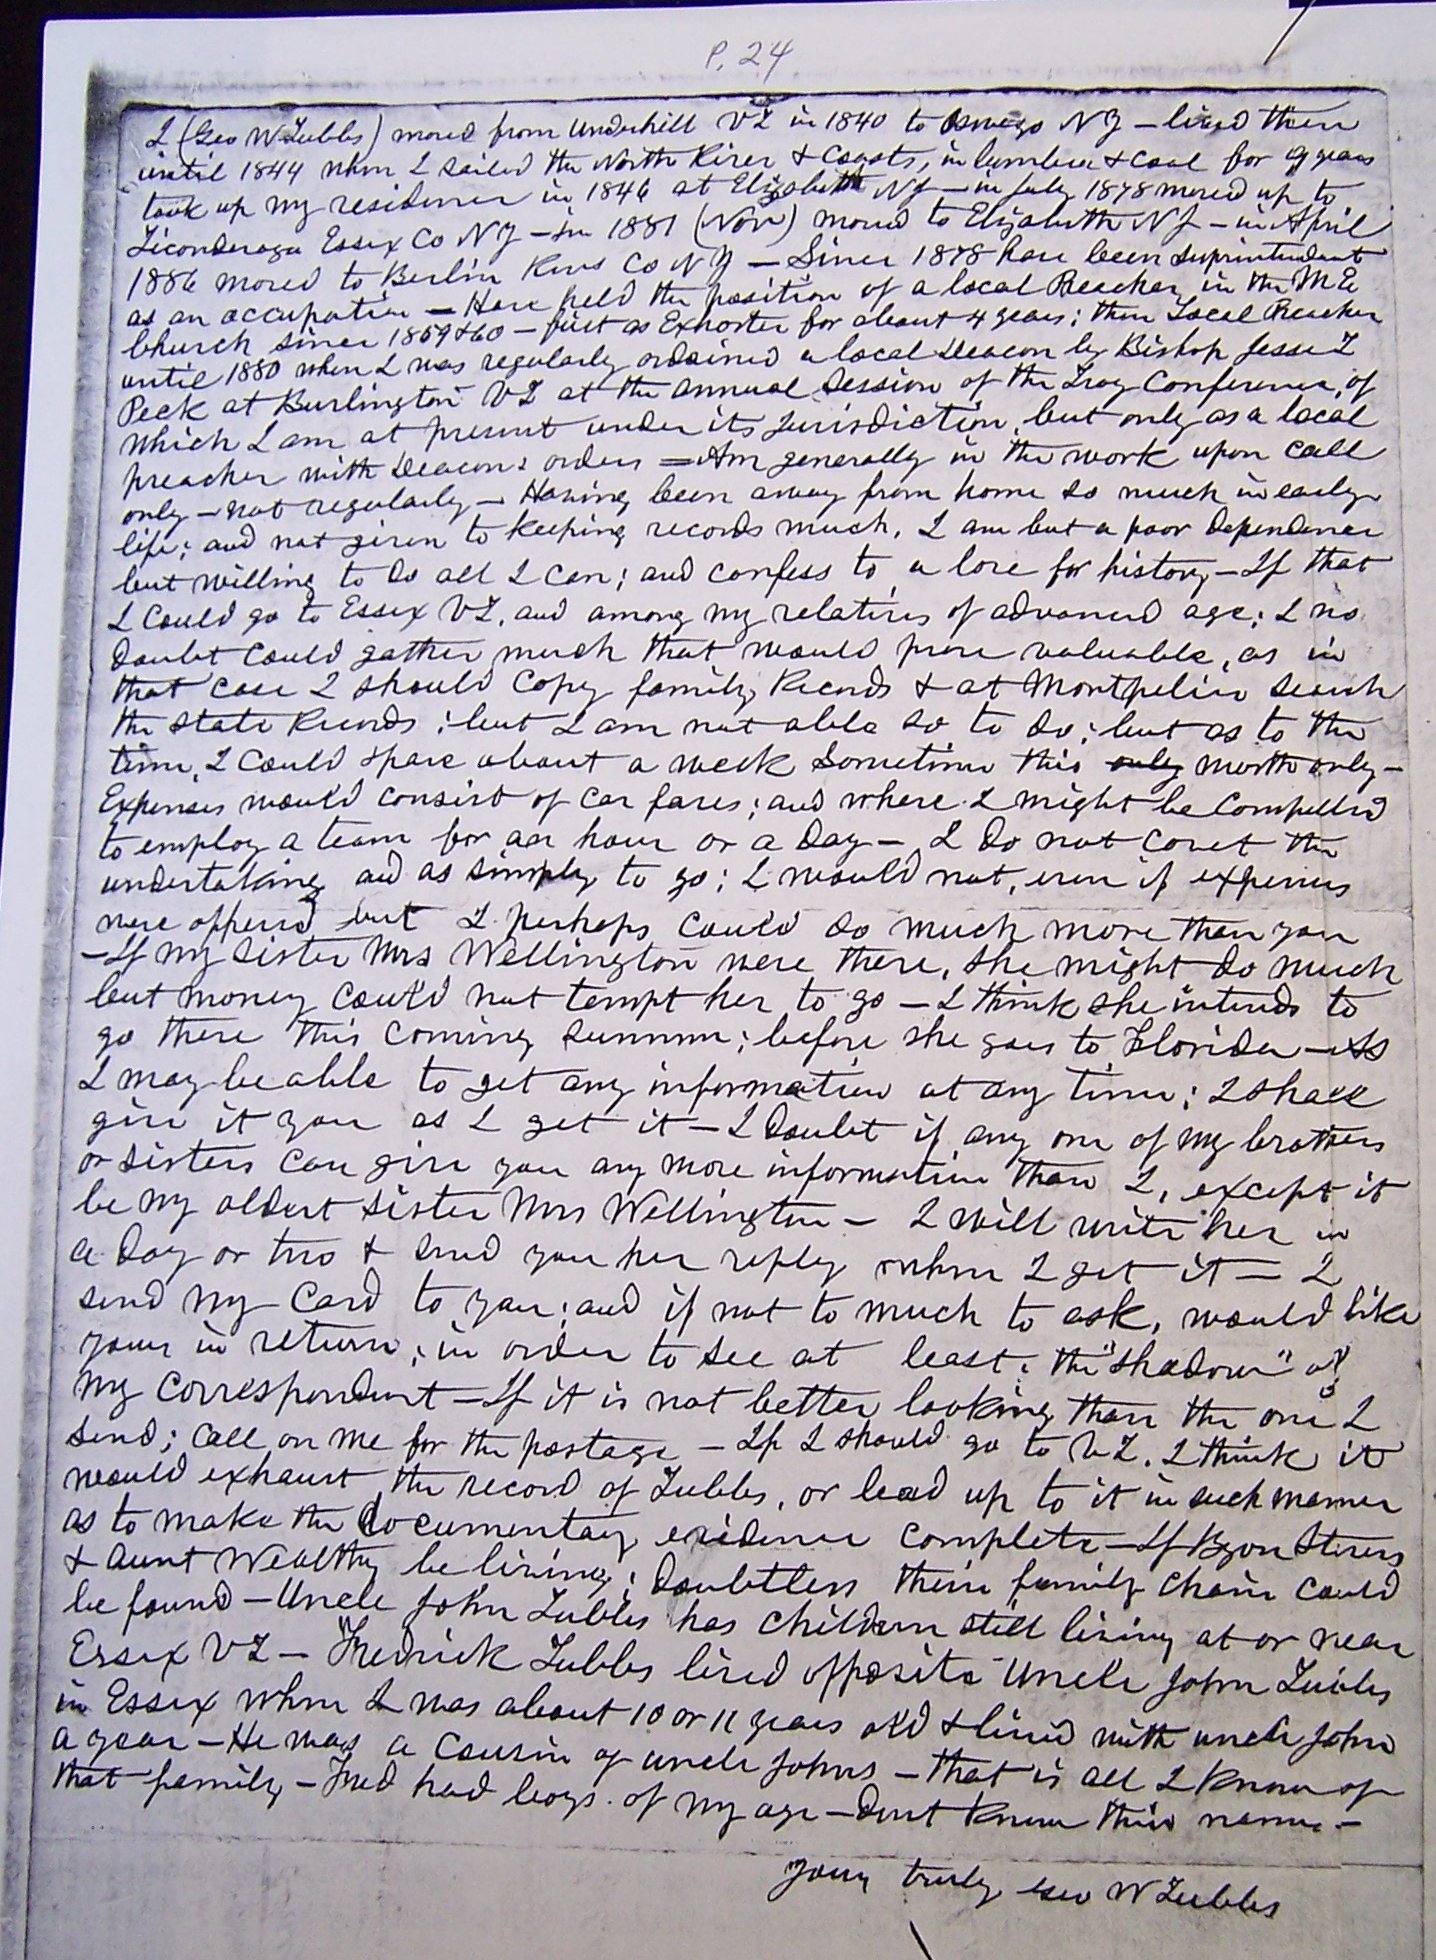 P. 24
I (Geo W Tubbs) moved from Underhill VT in 1840 to Oswego NY – lived there
until 1844 when I sailed the North River & Coasts, in lumber & coal for 9 years
took up my residence in 1846 at Elizabeth NJ – in July 1878 moved up to
Ticonderoga Essex Co NY – in 1881 (Nov) moved to Elizabeth NJ – in April
1886 moved to Berlin Rens Co NY – Since 1878 have been Suprintendant
as an occupation – Have held the position of a local Preacher in the M E
Church since 1859 & 60 – first as Exhorter for about 4 years; then Local Preacher
until 1880 when I was regularly ordained a local Deacon by Bishop Jesse T
Peck at Burlington VT at the annual Session of the Troy Conference, of
which I am at present under its jurisdiction, but only as a local
preacher with Deacons orders = Am generally in the work upon call
only – not regularly – Having been away from home so much in early
life; and not given to keeping records much, I am but a poor dependence
but willing to do all I can; and confess to a love for history – If that
I could go to Essex VT, and among my relatives of advanced age; I no
doubt could gather much that would prove valuable, as in
that case I should copy family Records & at Montpelier Search
the State Records; but I am not able so to do; but as to the
time, I could spare about a week Sometime this only month only –
Expenses would consist of car fares; and where I might be compelled
to employ a team for an hour or a day – I do not covet the
undertaking and as simply to go; I would not, even if expenses
were offered but I perhaps could do much more than you
– If my Sister Mrs Wellington were there, she might do much
but money could not tempt her to go – I think she intends to
go there this coming summer; before she goes to Florida – As
I may be able to get any information at any time; I shall
give it you as I get it – I doubt if any one of my brothers
or sisters can give you any more information than I, except it
be my oldest sister Mrs Wellington – I will write her in
a day or two & send you her reply when I get it – I
send my Card to you; and if not to much to ask, would like
yours in return; in order to see at least; the "shadow" of
my correspondent – If it is not better looking than the one I
send; call on me for the postage – If I should go to VT. I think it
would exhaust the record of Tubbs, or lead up to it in such manner
as to make the documentary evidence complete – If Byron Stevens
& Aunt Wealthy be living; doubtless their family chain could
be found – Uncle John Tubbs has children still living at or near
Essex VT – Fredrick Tubbs lived opposite Uncle John Tubbs
in Essex when I was about 10 or 11 years old & lived with uncle John
a year – He was a Cousin of uncle Johns – that is all I know of
that family – Fred had boys of my age – dont know their names –
Yours truly Geo W Tubbs